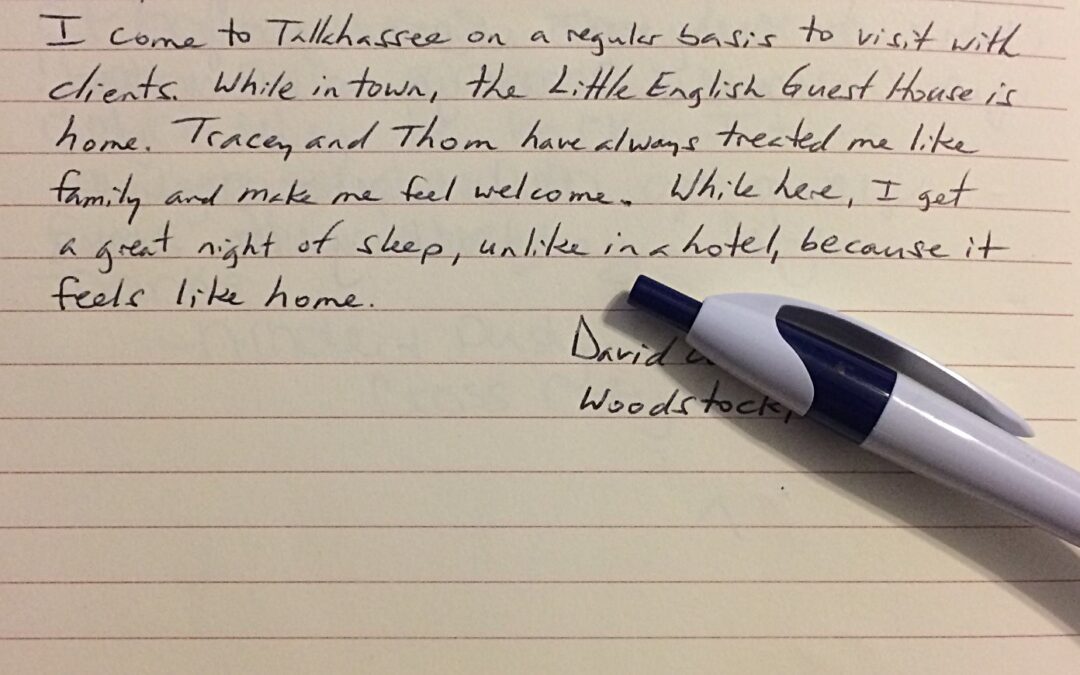 I come to Tallahassee on a regular basis to visit with
clients. While in town, the Little English Guest House is
home. Tracey and Thom have always treated me like
family and make me feel welcome. While here, I get
a great night of sleep, unlike in a hotel, because it
feels like home.
David
Woodstock,